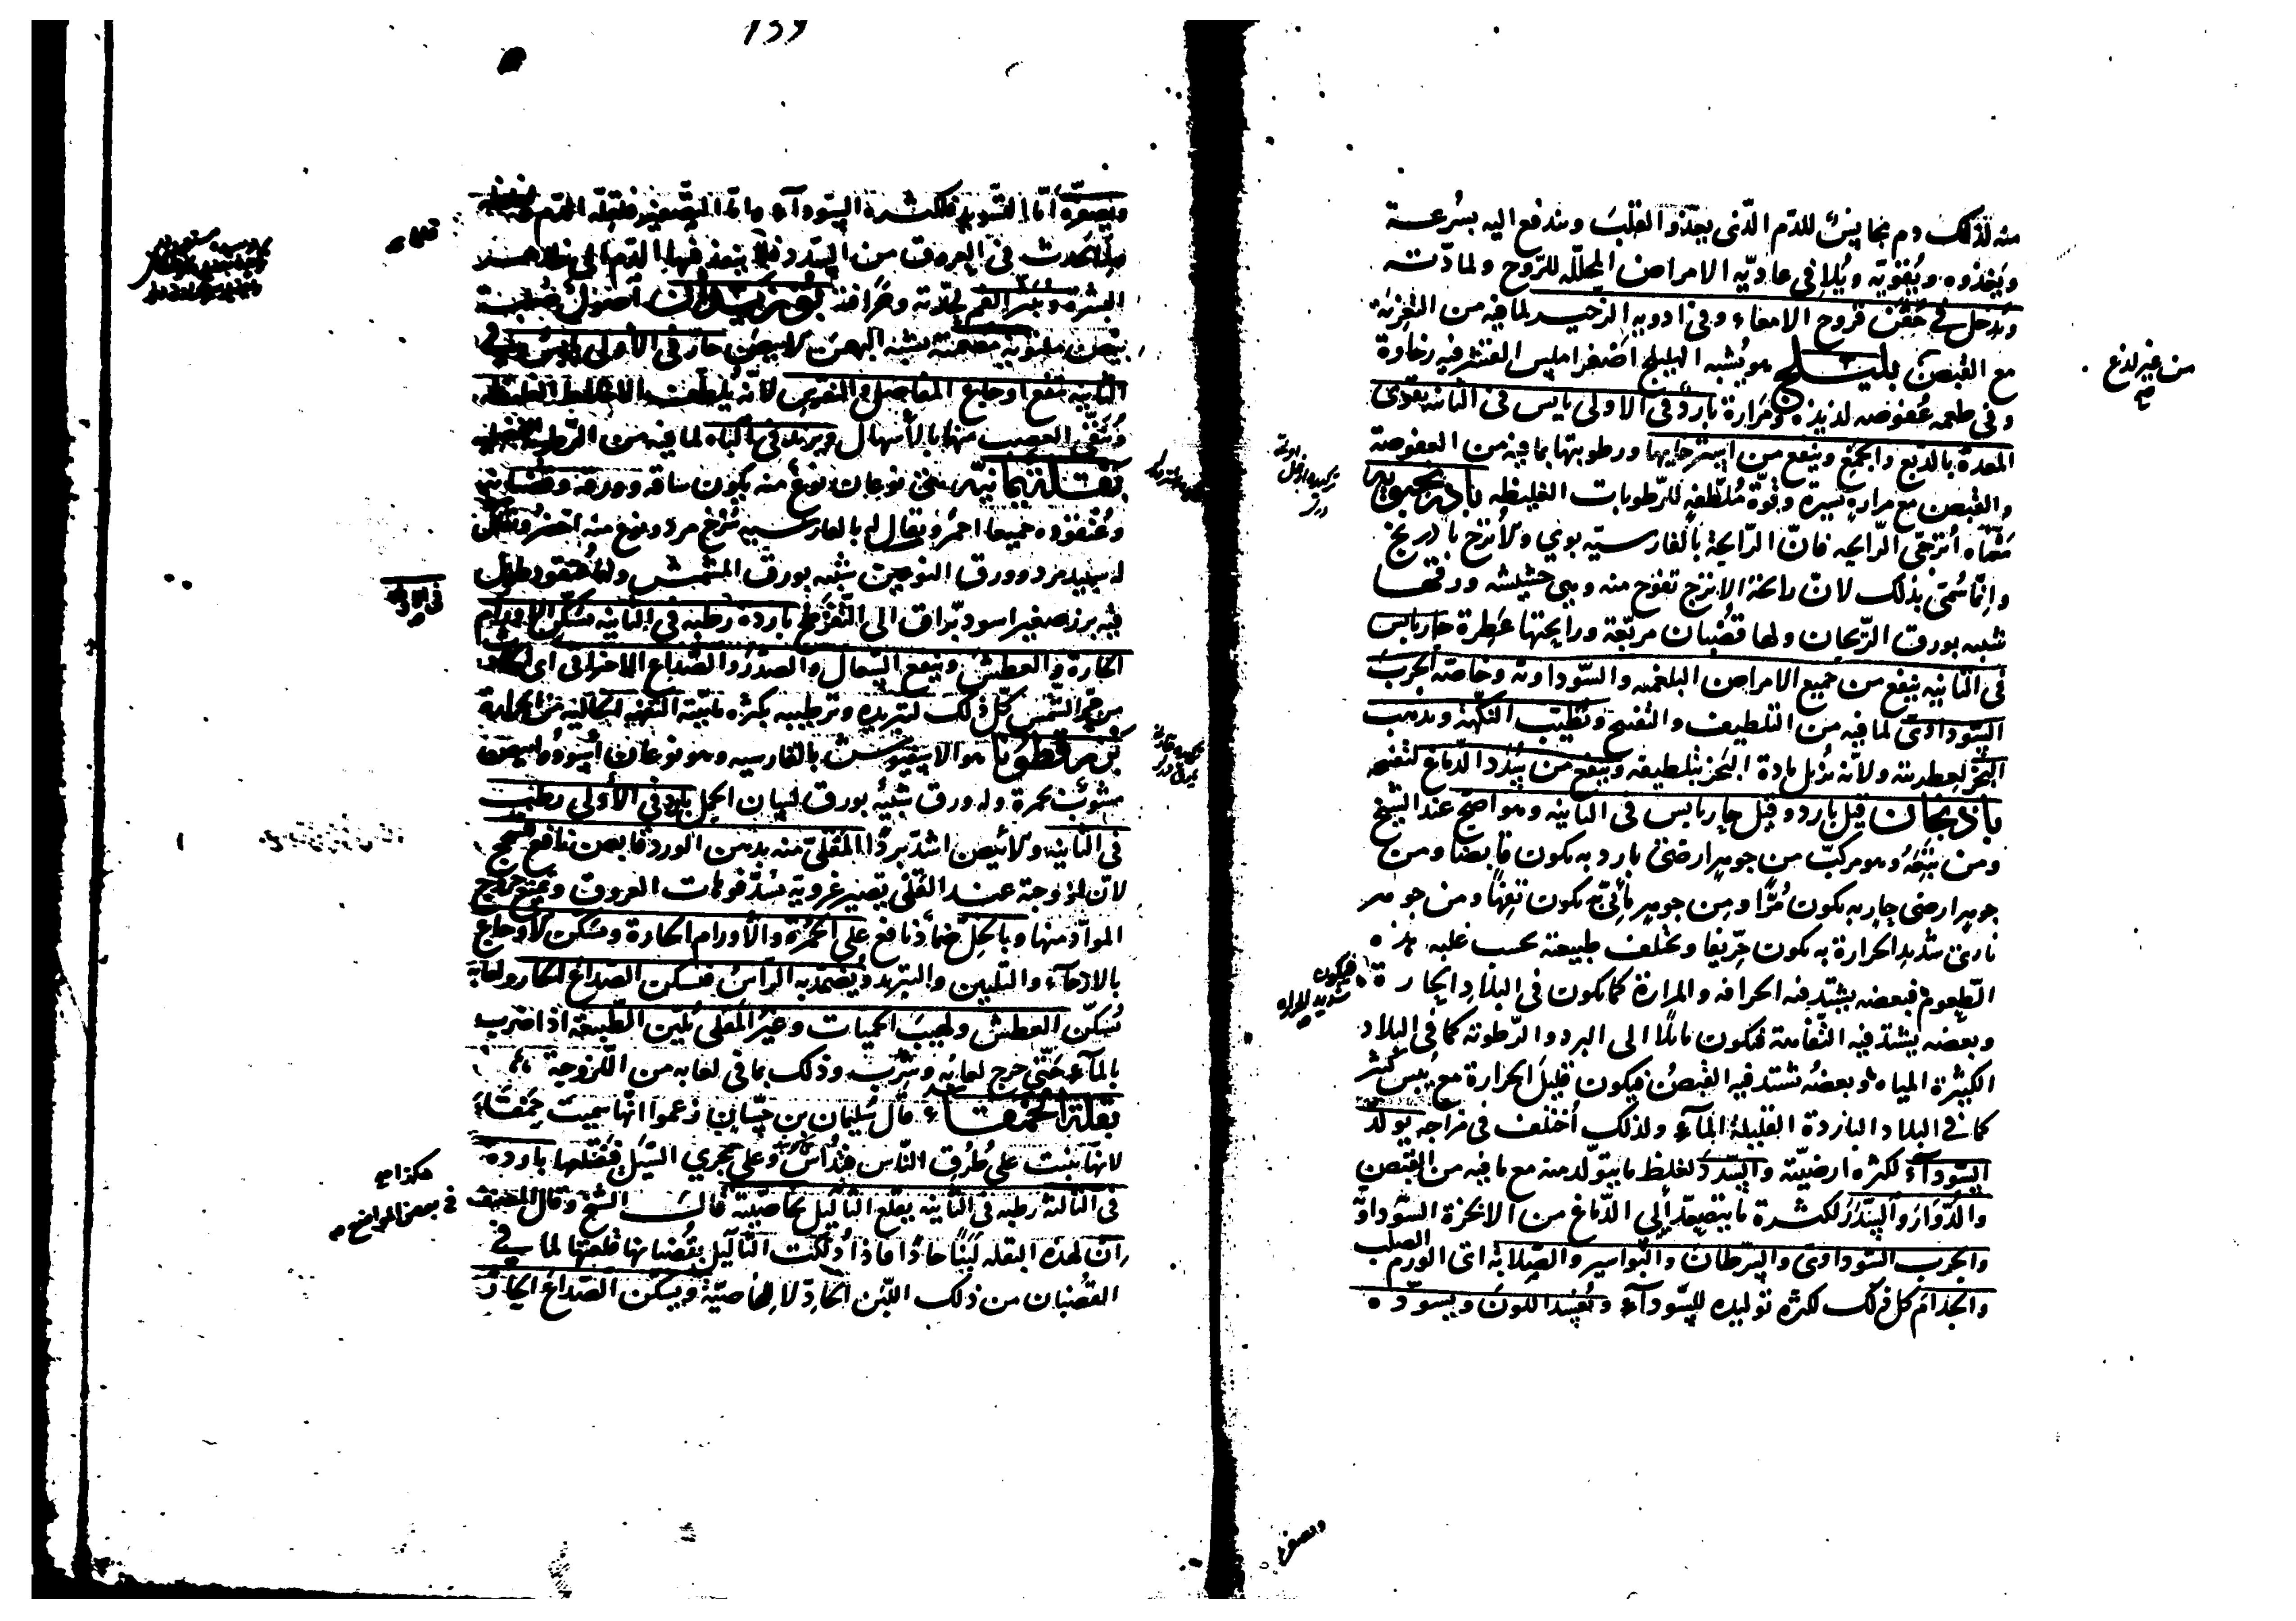 منه لذلك دم مجانس للدم الذى يغذو القلب ويندفع اليه بسرعة
ويغذوه ويقويه ويلافى عادية الامراض المحللة للروح ولمادته
ويدخل فى حقن قروح الامعاء وفى ادوية الزحير لما فيه من التغرية
مع القبض بليلج هو يشبه الهليلج اصفر املس القشر فيه رخاوة
من غير لذع صح
وفى طعمه عفوصة لذيذة ومرارة بارد فى الاولى يابس فى الثانية يقوى
المعدة بالدبغ والجمع وينفع من استرخائها ورطوبتها بما فيه من العفوصة
والقبض مع مرارة يسيرة وقوة ملطفة للرطوبات الغليظة بادرنجبويه
معناه اترجى الرائحة فان الرائحة بالفارسية بوى والاترج بادرنج
وانما سمى بذلك لان رائحة الاترج تفوح منه وهى حشيشة ورقها
شبيه بورق الريحان ولها قضبان مربعة ورائحتها عطرة حار يابس
فى الثانية ينفع من جميع الامراض البلغمية والسوداوية وخاصة الجرب
السوداوى لما فيه من التلطيف والتفتيح ويطيب النكهة ويذهب
البخر لعطريته ولانه يزيل مادة البخر بتلطيفه وينفع من سدد الدماغ لتفتيحه
باذنجان قيل بارد وقيل حار يابس فى الثانية وهو اصح عند الشيخ
ومن تبعه وهو مركب من جوهر ارضى بارد به يكون قابضا ومن
جوهر ارضى حار به يكون مرا ومن جوهر مائى به يكون تفها ومن جوهر
نارى شديد الحرارة به يكون حريفا ويختلف طبيعته بحسب غلبة هذه
الطعوم فبعضه يشتد فيه الحرافة والمرارة كما يكون فى البلاد الحارة
فيكون شديد الحرارة
وبعضه يشتد فيه التفاهة فيكون مائلا الى البرد والرطوبة كما فى البلاد
الكثيرة المياه وبعضه تشتد فيه القبض فيكون قليل الحرارة مع يبس كثير
كما فى البلاد الباردة القليلة الماء ولذلك اختلف فى مزاجه يولد
السوداء لكثرة ارضيته والسدد لغلظ ما يتولد منه مع ما فيه من القبض
والدوار والسدر لكثرة ما يتصعد الى الدماغ من الابخرة السوداوية
والجرب السوداوى والسرطان والبواسير والصلابة اى الورم الصلب
والجذام كل ذلك لكثرة توليده للسوداء ويفسد اللون ويسوده
ويصفره
ويصفره اما التسويد فلكثرة السوداء واما التصفير فلقلة الدم
لما يحدث فى العروق من السدد فلا ينفذ فيها الدم الى
البشرة ويبثر الفم لحدته وحرافته بوزيدان اصول صلبة
بيض ملتوية مصمتة يشبه البهمن الابيض حار فى الاولى يابس فى
الثانية ينفع اوجاع المفاصل والنقرس لانه يلطف الاخلاط الغليظة
وينقى العصب منها بالاسهال ويزيد فى الباه لما فيه من الرطوبة
بقلة يمانية هى نوعان نوع منه يكون ساقه وورقه وقضبانه
وعنقوده جميعا احمر ويقال له بالفارسية سرخ مرد ونوع منه اخضر ويقال
له سپيد مرد وورق النوعين شبيه بورق المشمش ولها عنقود طويل
فيه بزر صغير اسود براق الى التفرطح باردة رطبة فى الثانية تسكن الاورام
الحارة والعطش وينفع السعال والصدر والصداع الاحتراقى اى الحادث
من حر الشمس كل ذلك لتبريده وترطيبه بكثرة مائيته التفهة الخالية من الحرارة
بزرقطونا هو الاسفيوش بالفارسية وهو نوعان اسود وابيض
مشوب بحمرة وله ورق شبيه بورق لسان الحمل بارد فى الاولى رطب
فى الثانية والابيض اشد بردا المقلى منه بدهن الورد قابض نافع للسحج
لان لزوجته عند القلى يصير غروية تسد فوهات العروق ويمنع خروج
المواد منها وبالخل ضمادا نافع على الحمرة والاورام الحارة ويسكن الاوجاع
بالارخاء والتليين والتبريد ويضمد به الراس فيسكن الصداع الحار ولعابه
يسكن العطش ولهيب الحميات وغير المقلى يلين الطبيعة اذا ضرب
بالماء حتى خرج لعابه وشرب وذلك بما فى لعابه من اللزوجة
بقلة الحمقاء قال سليمان بن حسان زعموا انها سميت حمقاء
لانها ينبت على طرق الناس فتداس وعلى مجرى السيل فيقلعها باردة
فى الثالثة رطبة فى الثانية يقلع الثآليل بخاصية قال الشيخ وقال المصنف
فى بعض المواضع
هكذا
ان لهذه البقلة لبنا حادا فاذا دلكت الثآليل بقضبانها قلعتها لما فى
القضبان من ذلك اللبن الحاد لا لخاصية ويسكن الصداع الحار